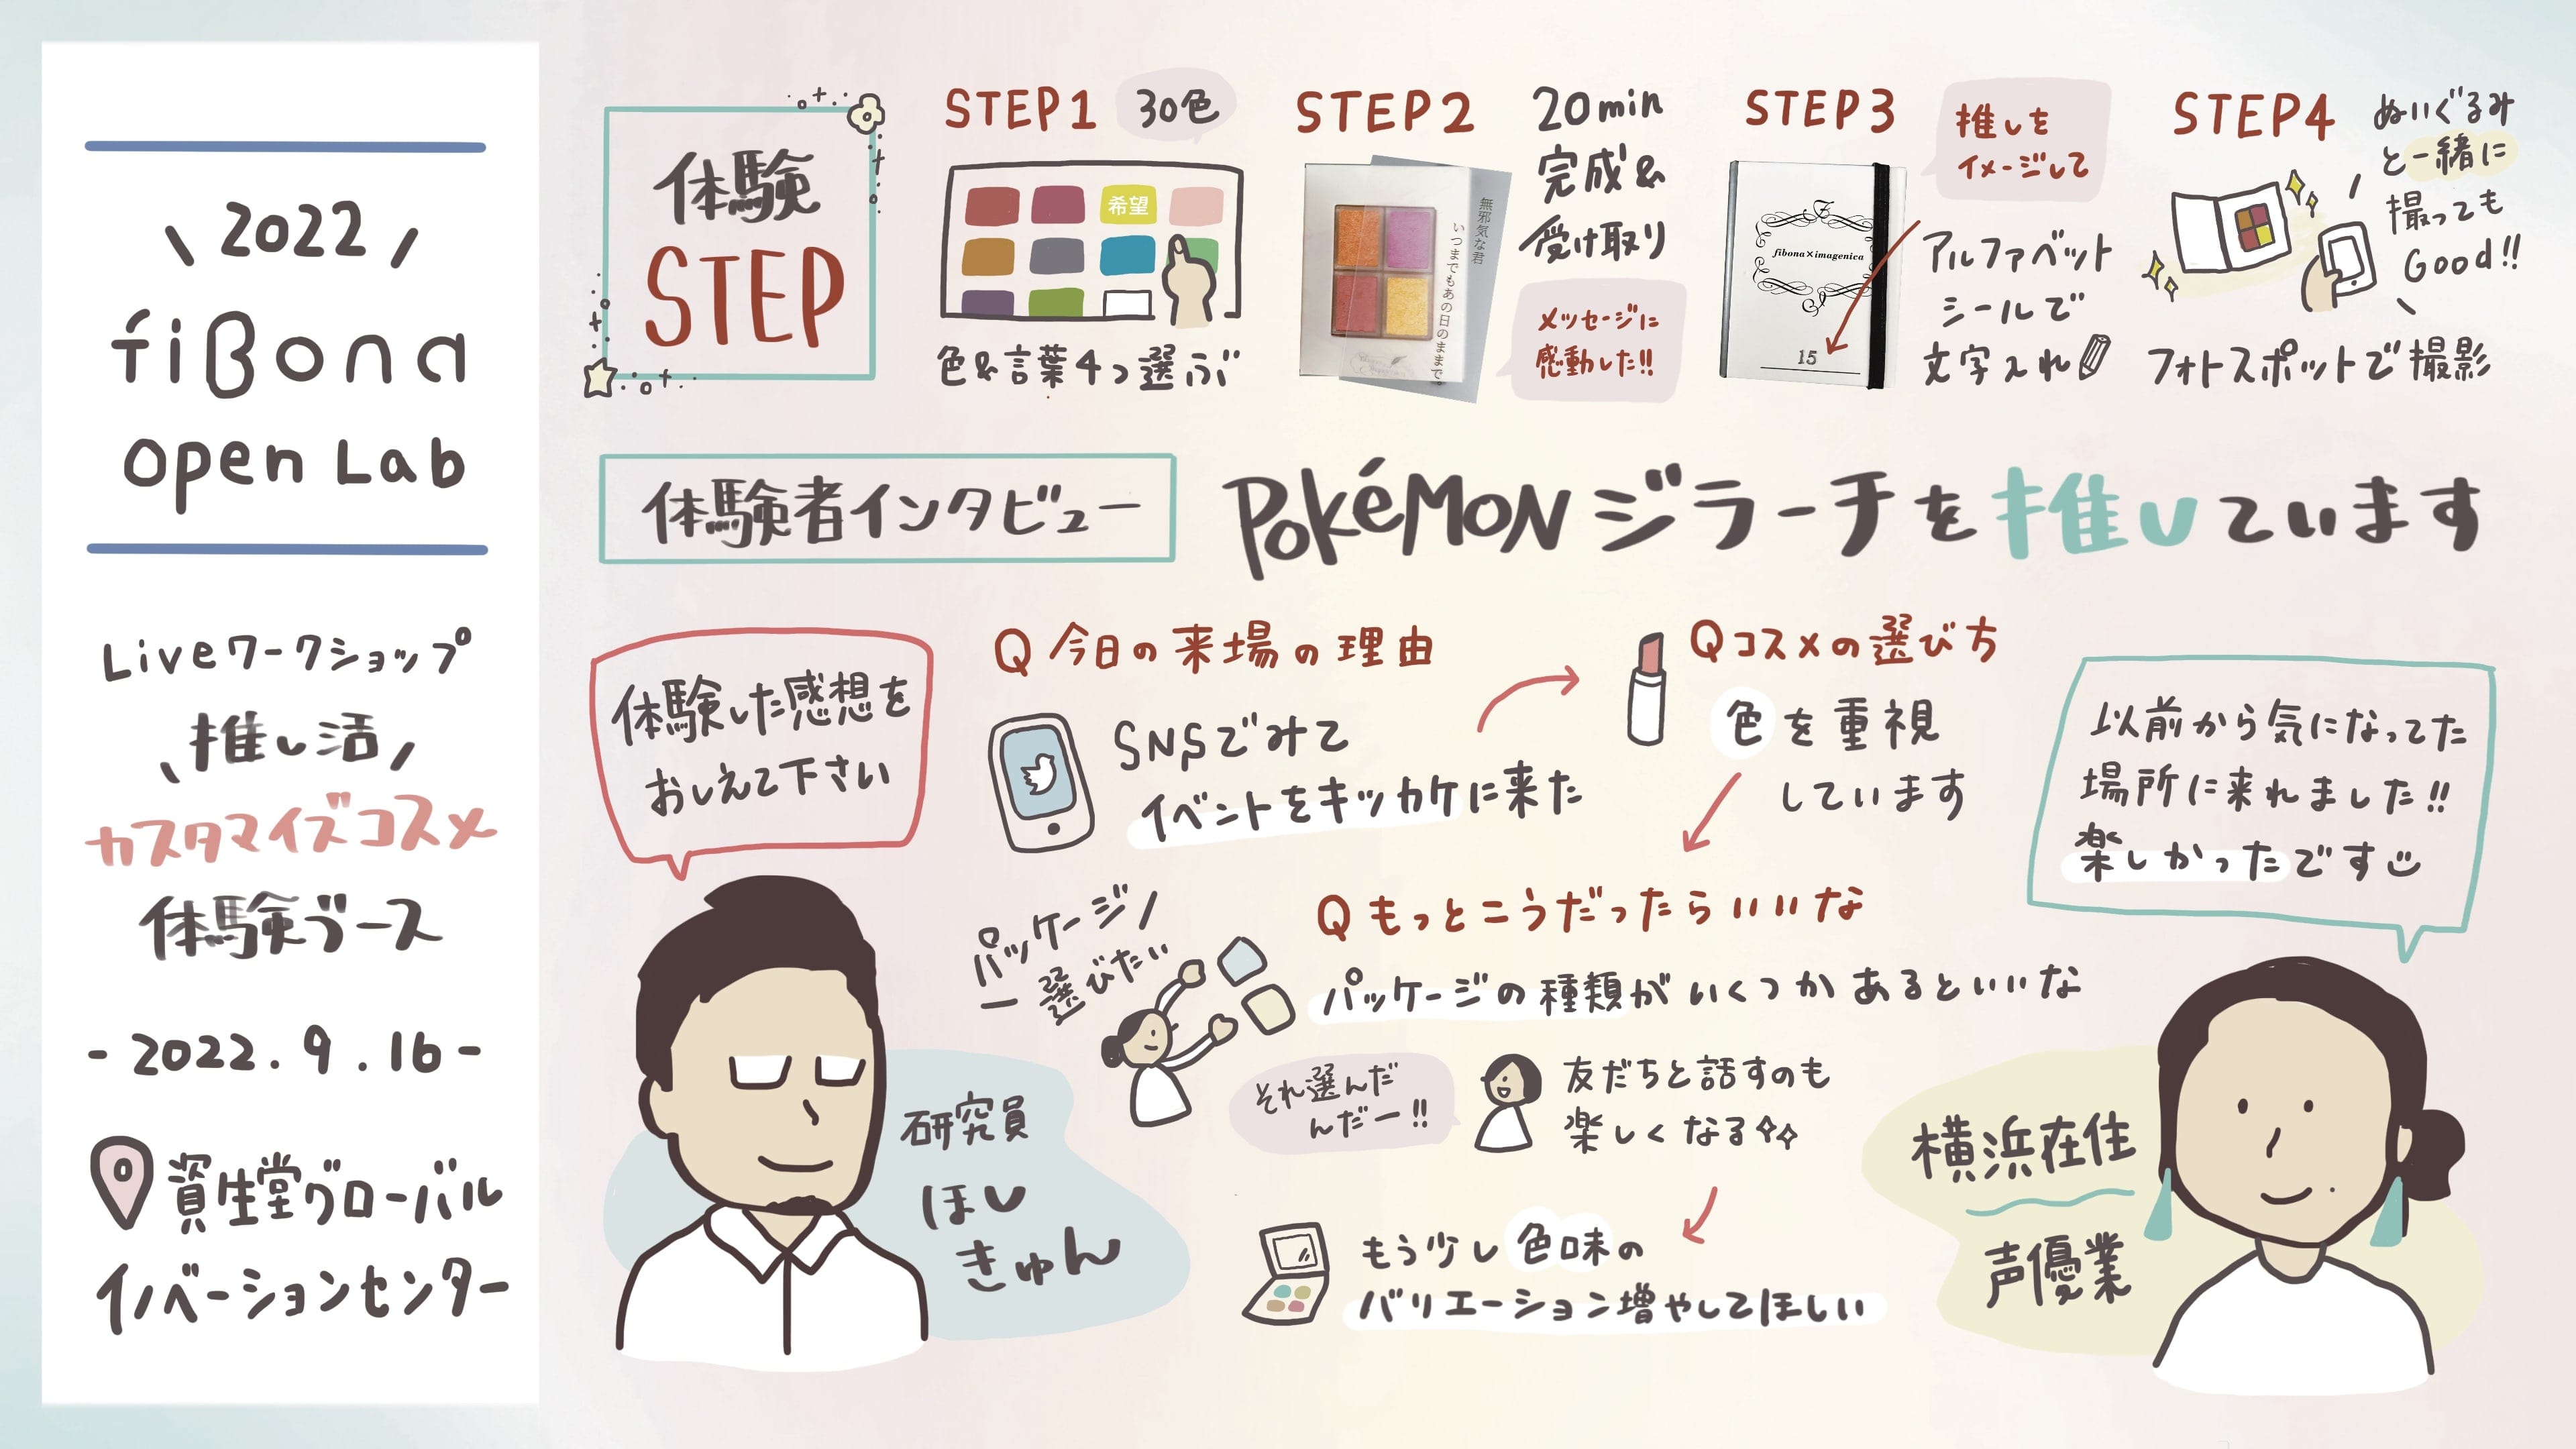 2022
fiBona
open Lab
Liveワークショップ
推し活
カスタマイズコスメ
体験ブース
-2022.9.16-
資生堂グローバル
イノベーションセンター
体験
STEP
STEP1
30色
希望
色&言葉4つ選ぶ
STEP2
20min
完成&
受け取り
無邪気な君
いつまでもあの日のままで。
メッセージに
感動した!!
STEP3
推しを
イメージして
fibona×imagenica
15
アルファベット
シールで
文字入れ
STEP4
ぬいぐるみ
と一緒に
撮っても
Good!!
フォトスポットで撮影
体験者インタビュー
PokéMON ジラーチを推しています
体験した感想を
おしえて下さい
研究員
ほし
きゅん
Q 今日の来場の理由
SNSでみて
イベントをキッカケに来た
Qコスメの選び方
色を重視
しています
Q もっとこうだったらいいな
パッケージ
選びたい
パッケージの種類がいくつかあるといいな
それ選んだ
んだー!!
友だちと話すのも
楽しくなる
もう少し色味の
バリエーション増やしてほしい
以前から気になってた
場所に来れました!!
楽しかったです
横浜在住
声優業